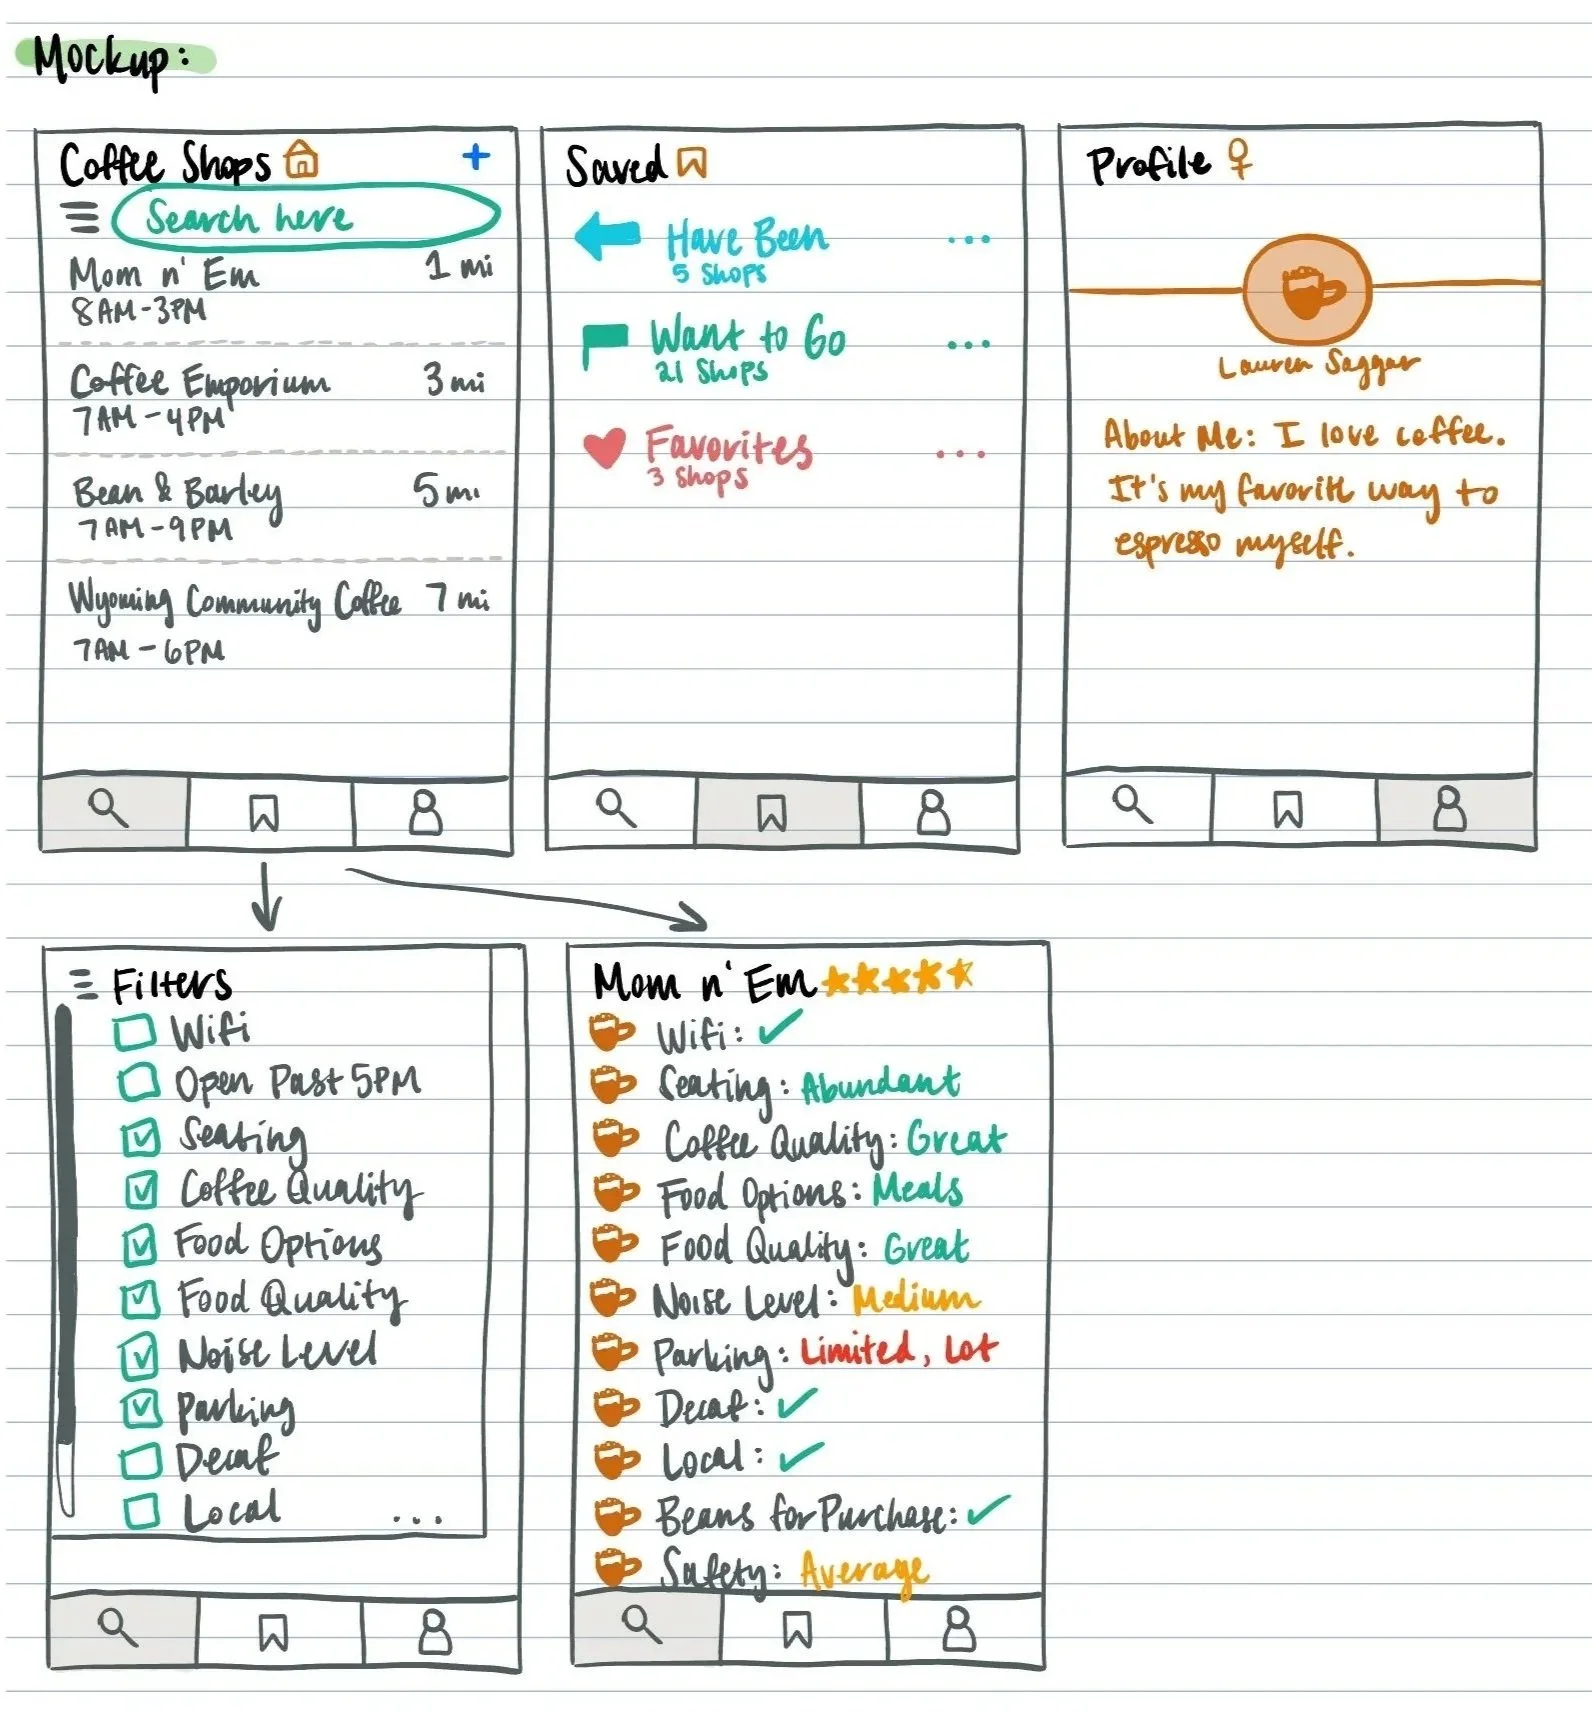 Mockup:
Coffee Shops
Search here
Mom n' Em 1 mi
8AM-3PM
Coffee Emporium 3 mi
7AM-4PM
Bean & Barley 5 mi
7AM-9PM
Wyoming Community Coffee 7 mi
7AM-6PM
Saved
Have Been ...
5 Shops
Want to Go ...
21 Shops
Favorites ...
3 Shops
Profile
Lauren Saggar
About Me: I love coffee.
It's my favorite way to
espresso myself.
Filters
Wifi
Open Past 5PM
Seating
Coffee Quality
Food Options
Food Quality
Noise Level
Parking
Decaf
Local ...
Mom n' Em
Wifi: ✓
Seating: Abundant
Coffee Quality: Great
Food Options: Meals
Food Quality: Great
Noise Level: Medium
Parking: Limited, Lot
Decaf: ✓
Local: ✓
Beans for Purchase: ✓
Safety: Average